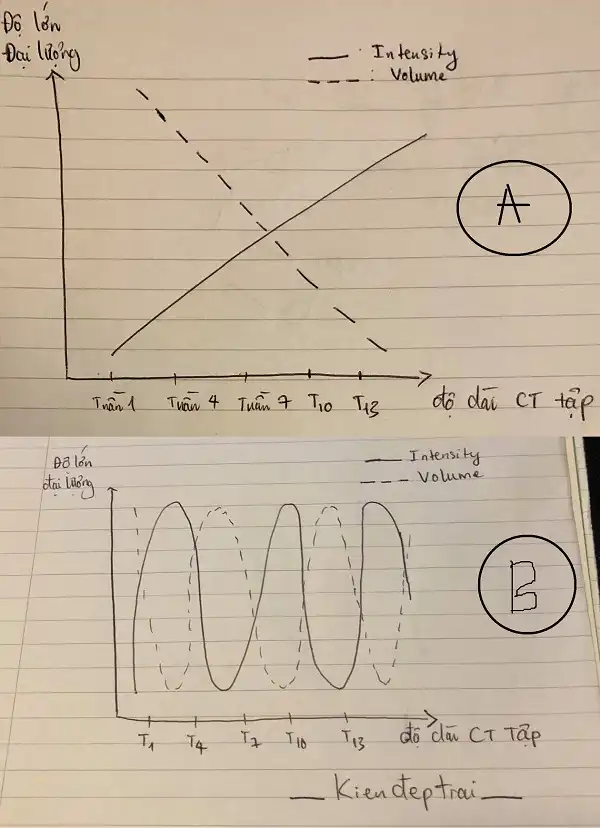 Độ lớn
Đại lượng
Intensity
Volume
A
Tuần 1 Tuần 4 Tuần 7 T10 T13 độ dài CT tập
Độ lớn
đại lượng
Intensity
Volume
B
T1 T4 T7 T10 T13 độ dài CT Tập
Kiendeptrai